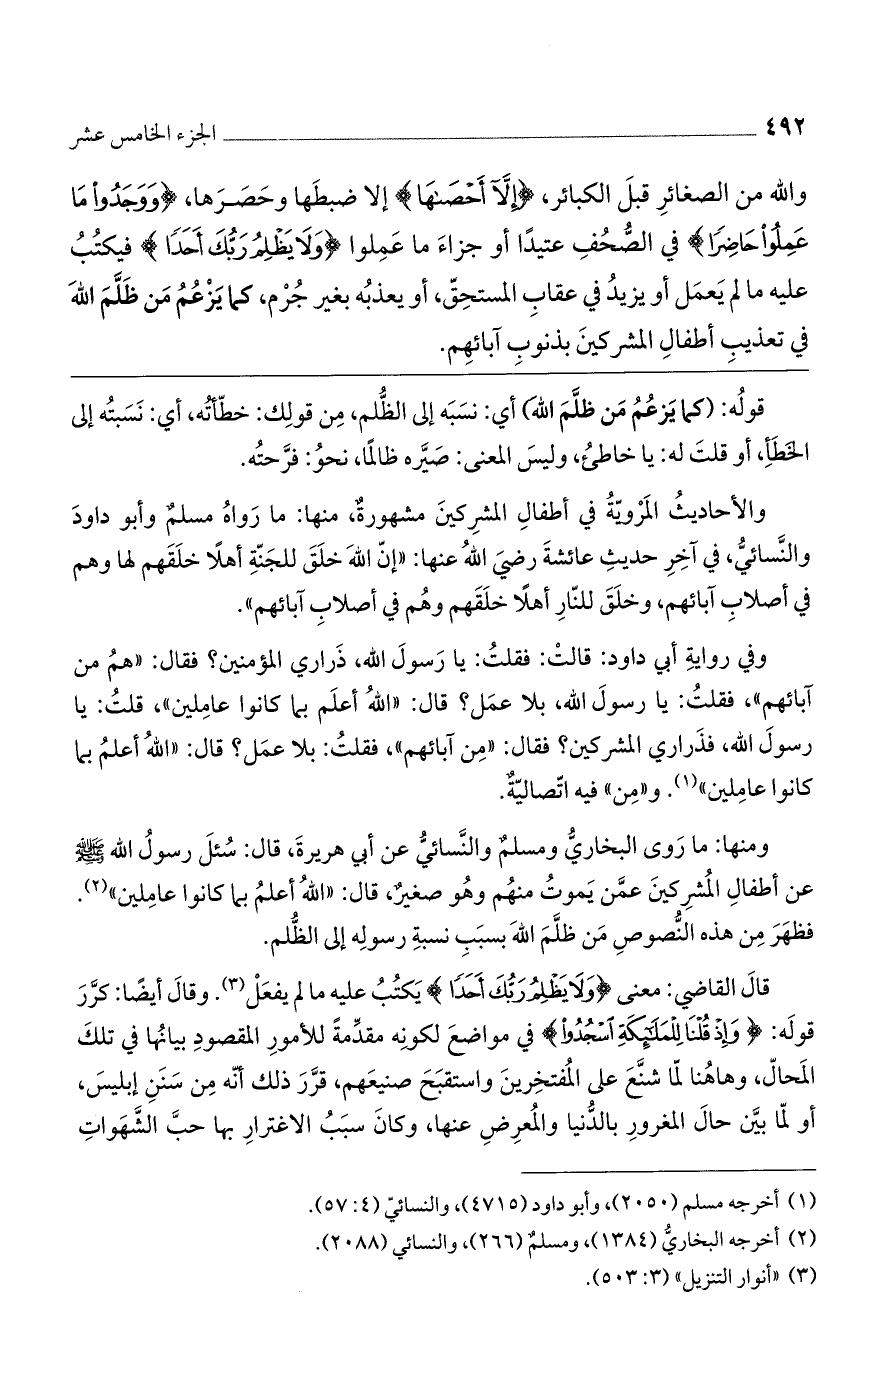 ٤٩٢ الجزء الخامس عشر
والله من الصغائرِ قبلَ الكبائر، ﴿إِلَّآ أَحْصَىٰهَا﴾ إلا ضبطَها وحَصَرَها، ﴿وَوَجَدُوا۟ مَا
عَمِلُوا۟ حَاضِرًا﴾ في الصُّحُفِ عتيدًا أو جزاءَ ما عَمِلوا ﴿وَلَا يَظْلِمُ رَبُّكَ أَحَدًا﴾ فيكتُبُ
عليه ما لم يَعمَل أو يزيدُ في عقابِ المستحِقّ، أو يعذبُه بغير جُرْم، كما يَزْعُمُ مَن ظَلَّمَ اللهَ
في تعذيبِ أطفالِ المشركينَ بذنوبِ آبائهِم.
قولُه: (كما يَزعُمُ مَن ظلَّمَ اللهَ) أي: نسَبَه إلى الظُّلم، مِن قولِك: خطّأتُه، أي: نَسَبتُه إلى
الخطَأِ، أو قلتَ له: يا خاطئُ، وليسَ المعنى: صَيَّره ظالمًا، نحوُ: فرَّحتُه.
والأحاديثُ المَرْويّةُ في أطفالِ المشركينَ مشهورةٌ، منها: ما رَواهُ مسلمٌ وأبو داودَ
والنَّسائيُّ، في آخِرِ حديثِ عائشةَ رضيَ اللهُ عنها: «إنّ اللهَ خلَقَ للجَنّةِ أهلًا خلَقَهم لها وهم
في أصلابِ آبائهم، وخلَقَ للنّارِ أهلًا خلَقَهم وهُم في أصلابِ آبائهم».
وفي روايةِ أبي داود: قالتْ: فقلتُ: يا رَسولَ الله، ذَراري المؤمنين؟ فقال: «همُ من
آبائهم»، فقلتُ: يا رسولَ الله، بلا عمَل؟ قال: «اللهُ أعلَم بما كانوا عاملين»، قلتُ: يا
رسولَ الله، فذَراري المشركين؟ فقال: «مِن آبائهم»، فقلتُ: بلا عمَل؟ قال: «اللهُ أعلمُ بما
كانوا عامِلين»(١). و«مِن» فيه اتّصاليّةٌ.
ومنها: ما رَوى البخاريُّ ومسلمٌ والنَّسائيُّ عن أبي هريرةَ، قال: سُئلَ رسولُ الله ﷺ
عن أطفالِ المُشركينَ عمَّن يَموتُ منهُم وهُو صغيرٌ، قال: «اللهُ أعلمُ بما كانوا عامِلين»(٢).
فظهَرَ مِن هذه النُّصوصِ مَن ظلَّمَ اللهَ بسبَبِ نسبةِ رسولِه إلى الظُّلم.
قالَ القاضي: معنى ﴿وَلَا يَظْلِمُ رَبُّكَ أَحَدًا﴾ يَكتُبُ عليه ما لم يفعَلْ(٣). وقالَ أيضًا: كرَّرَ
قولَه: ﴿وَإِذْ قُلْنَا لِلْمَلَٰٓئِكَةِ ٱسْجُدُوا۟﴾ في مواضعَ لكونِه مقدِّمةً للأمورِ المقصودِ بيانُها في تلكَ
المَحالّ، وهاهُنا لمّا شنَّعَ على المُفتخِرينَ واستقبَحَ صنيعَهم، قرَّرَ ذلك أنّه مِن سَنَنِ إبليسَ،
أو لمّا بيَّن حالَ المغرورِ بالدُّنيا والمُعرِضِ عنها، وكانَ سبَبُ الاغترارِ بها حبَّ الشَّهَواتِ
(١) أخرجه مسلم (٢٠٥٠)، وأبو داود (٤٧١٥)، والنسائيّ (٤: ٥٧).
(٢) أخرجه البخاريُّ (١٣٨٤)، ومسلمٌ (٢٦٦)، والنسائي (٢٠٨٨).
(٣) «أنوار التنزيل» (٣: ٥٠٣).